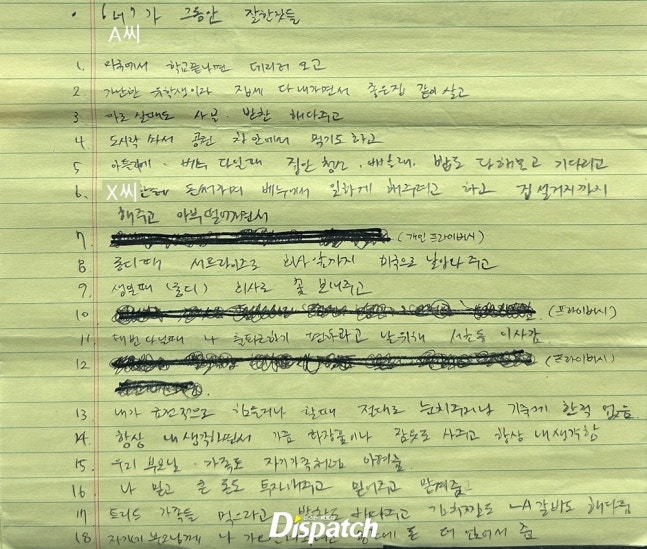 • 가 그동안 잘한것들
A씨
1. 미국에서 학교끝나면 데리러 오고
2 가난한 유학생이라 집세 다 내가면서 좋은집 같이 살고
3 따로 살때도 사 반찬 해다주고
4 도시락 싸서 공원 차 안에서 먹기도 하고
5 베누 다닐때 집안 청소, 빨래, 밥도 다해놓고 기다리고
6. X씨 돈써주며 베누에서 일하게 해주려고 하고 접 설거지까지
해주고 아부 떨어가면서
7 (개인 프라이버시)
8 롱디때 서프라이즈로 회사 앞까지 미국으로 날아와 주고
9 생일때 (롱디) 회사로 꽃 보내주고
10 (프라이버시)
11 다닐때 나 출퇴근하기 편하라고 날위해 서초동 이사감
12 (프라이버시)
13 내가 금전적으로 힘들거나 할때 절대로 눈치주거나 기죽게 한적 없음
14. 항상 내 생각하면서 가끔 화장품이나 사주고 항상 내 생각함
15 우리 부모님 가족도 자기가족처럼 아껴줌
16 나 믿고 큰 돈도 투자해주고 믿어주고 맡겨줌
17 가족들 먹으라고 해다주고 김치찜도 LA갈비도 해다줌
18 자기네 부모님께 나 돈 더 얹어서 줌
Dispatch